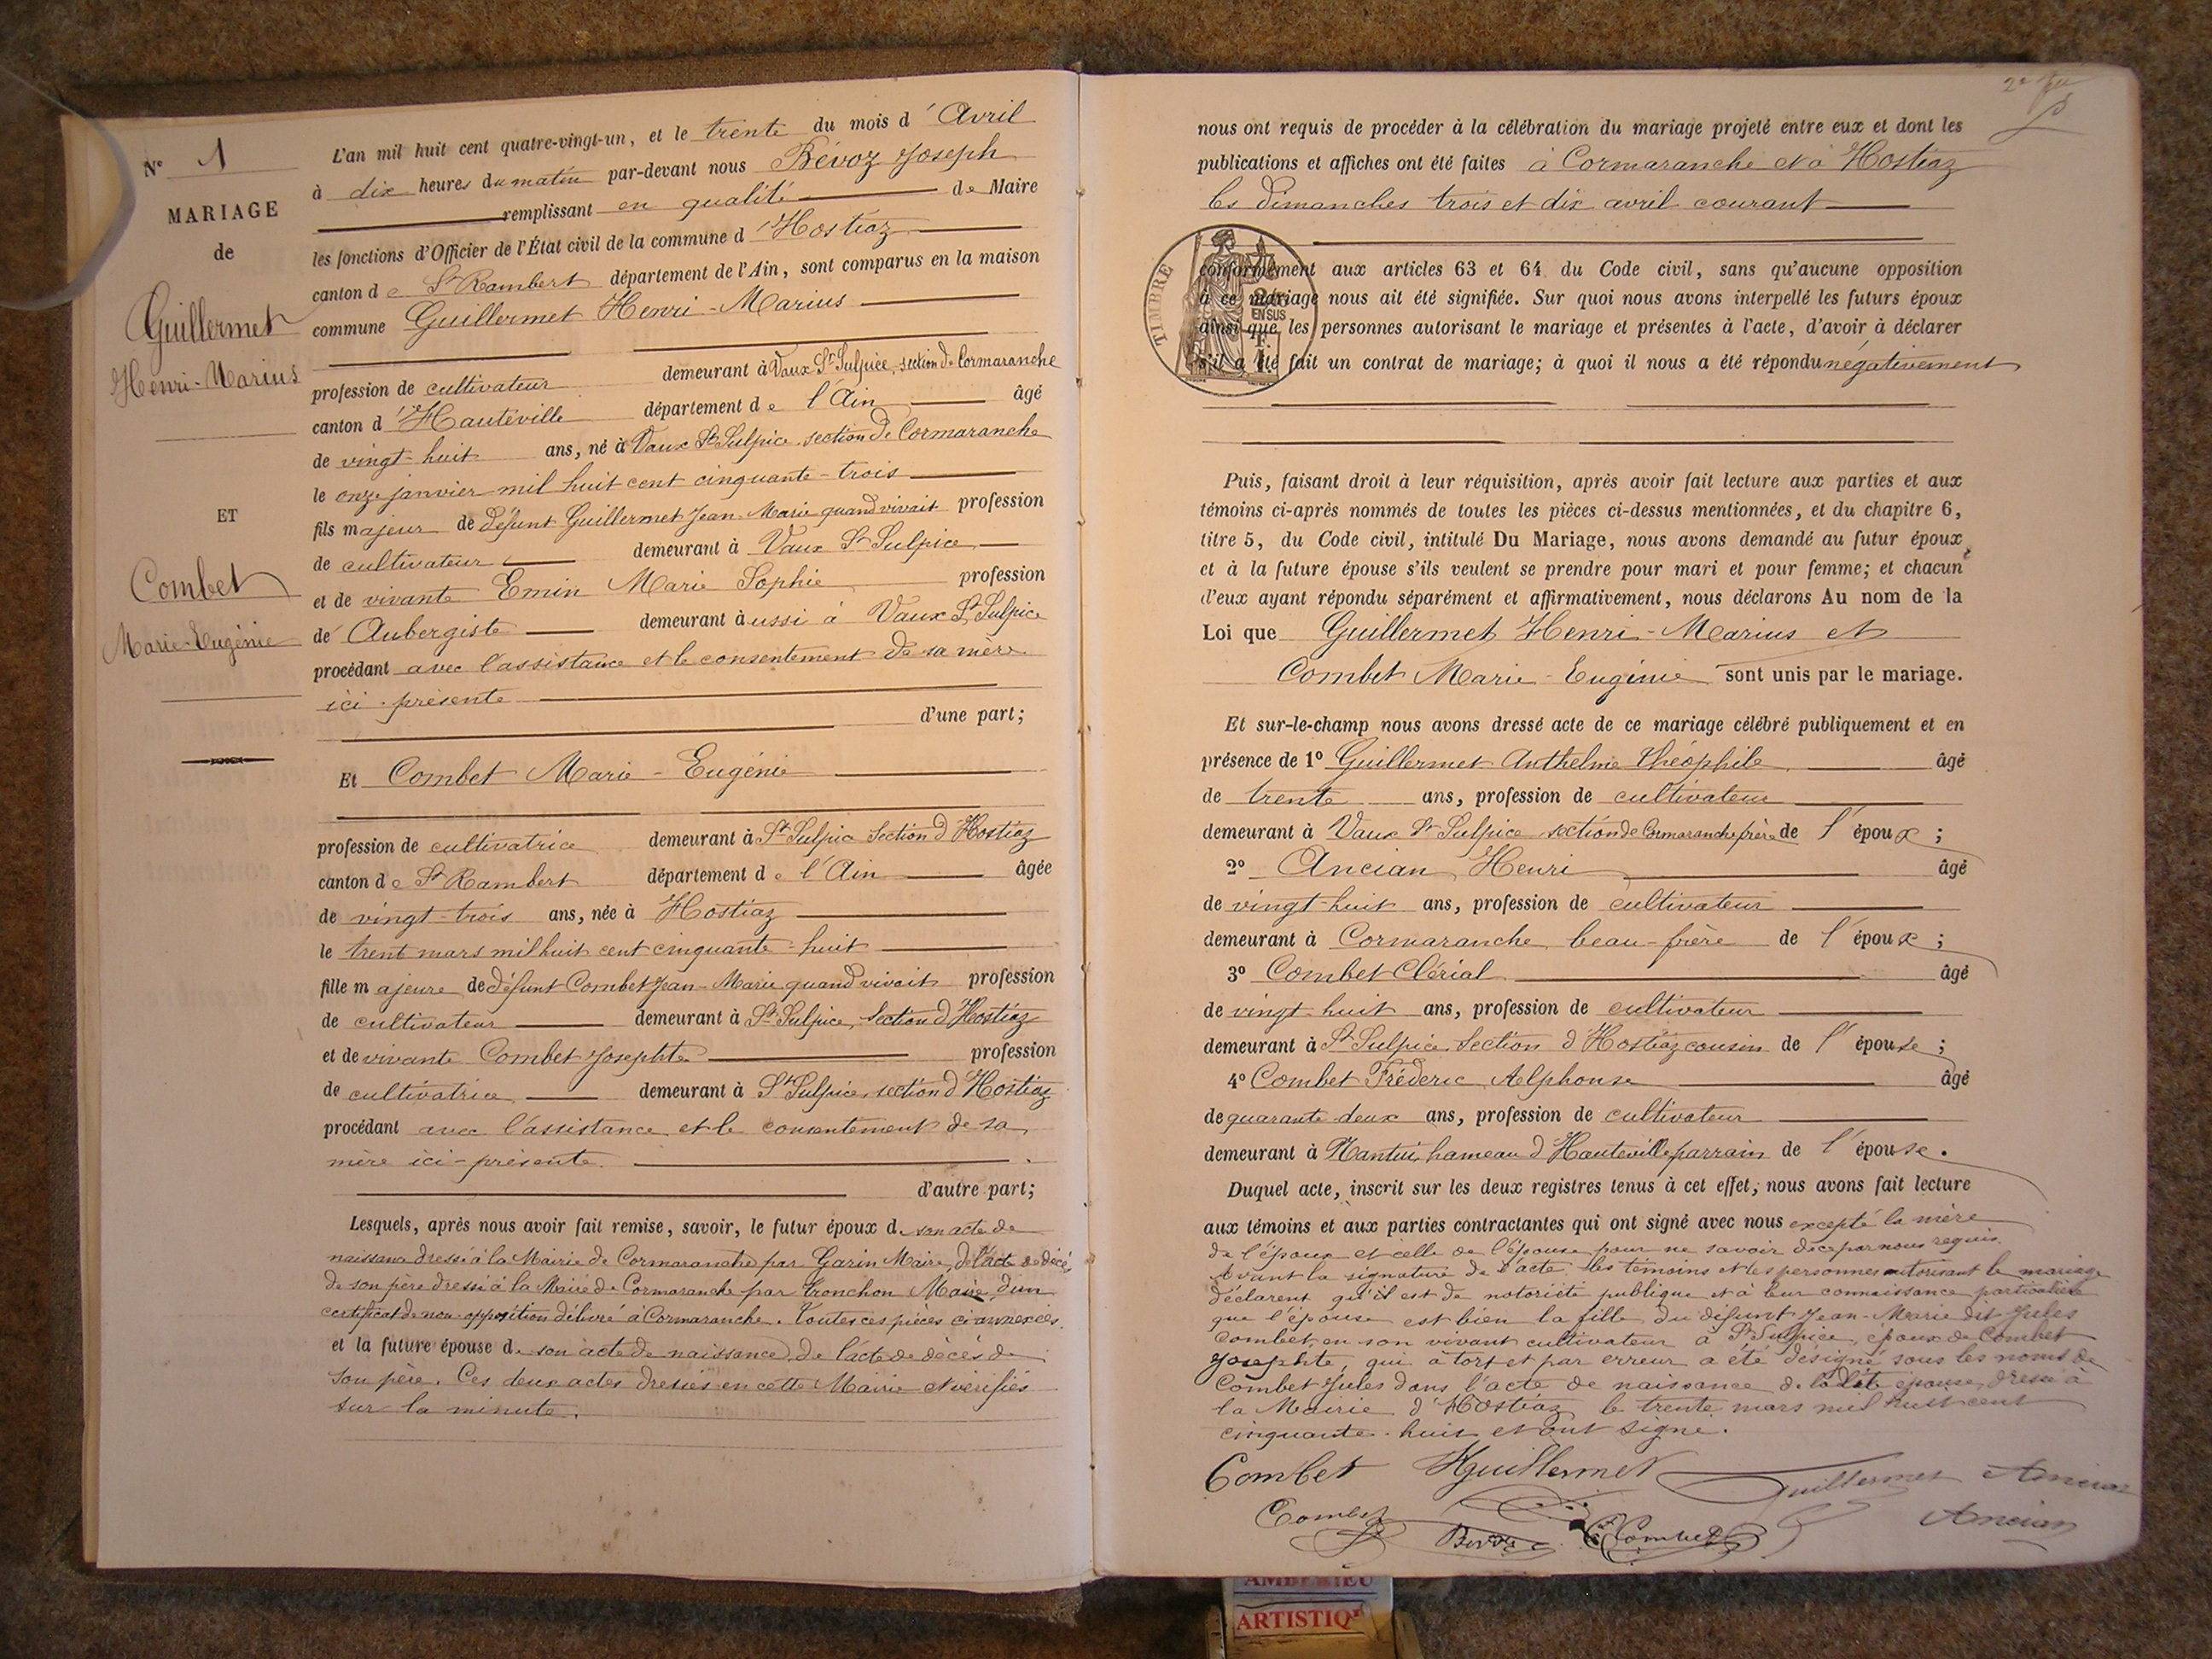 N° 1
MARIAGE
de
Guillermet
Henri-Marius
ET
Combet
Marie-Eugénie
L'an mil huit cent quatre-vingt-un, et le trente du mois d'Avril
à dix heures du matin par-devant nous Bévoz Joseph
remplissant en qualité de Maire
les fonctions d'Officier de l'État civil de la commune d'Hostiaz
canton de St Rambert département de l'Ain, sont comparus en la maison
commune Guillermet Henri-Marius
profession de cultivateur demeurant à Vaux St Sulpice, section de Cormaranche
canton d'Hauteville département de l'Ain âgé
de vingt-huit ans, né à Vaux St Sulpice section de Cormaranche
le onze janvier mil huit cent cinquante-trois
fils majeur de défunt Guillermet Jean-Marie quand vivait profession
de cultivateur demeurant à Vaux St Sulpice
et de vivante Emin Marie Sophie profession
de Aubergiste demeurant aussi à Vaux St Sulpice
procédant avec l'assistance et le consentement de sa mère
ici présente
d'une part;
Et Combet Marie-Eugénie
profession de cultivatrice demeurant à St Sulpice Section d'Hostiaz
canton de St Rambert département de l'Ain âgée
de vingt-trois ans, née à Hostiaz
le trent mars mil huit cent cinquante-huit
fille majeure de défunt Combet Jean-Marie quand vivait profession
de cultivateur demeurant à St Sulpice, Section d'Hostiaz
et de vivante Combet Josephte profession
de cultivatrice demeurant à St Sulpice, section d'Hostiaz
procédant avec l'assistance et le consentement de sa
mère ici-présente.
d'autre part;
Lesquels, après nous avoir fait remise, savoir, le futur époux de son acte de
naissance dressé à la Mairie de Cormaranche par Garin Maire, de l'acte de décès
de son père dressé à la Mairie de Cormaranche par Tronchon Maire, d'un
certificat de non-opposition délivré à Cormaranche. Toutes ces pièces ci-annexées.
et la future épouse de son acte de naissance, de l'acte de décès de
son père. Ces deux actes dressés en cette Mairie et vérifiés
sur la minute.
nous ont requis de procéder à la célébration du mariage projeté entre eux et dont les
publications et affiches ont été faites à Cormaranche et à Hostiaz
les dimanches trois et dix avril courant
TIMBRE
EN SUS
conformément aux articles 63 et 64 du Code civil, sans qu'aucune opposition
à ce mariage nous ait été signifiée. Sur quoi nous avons interpellé les futurs époux
ainsi que les personnes autorisant le mariage et présentes à l'acte, d'avoir à déclarer
s'il a été fait un contrat de mariage; à quoi il nous a été répondu négativement
Puis, faisant droit à leur réquisition, après avoir fait lecture aux parties et aux
témoins ci-après nommés de toutes les pièces ci-dessus mentionnées, et du chapitre 6,
titre 5, du Code civil, intitulé Du Mariage, nous avons demandé au futur époux
et à la future épouse s'ils veulent se prendre pour mari et pour femme; et chacun
d'eux ayant répondu séparément et affirmativement, nous déclarons Au nom de la
Loi que Guillermet Henri-Marius et
Combet Marie-Eugénie sont unis par le mariage.
Et sur-le-champ nous avons dressé acte de ce mariage célébré publiquement et en
présence de 1° Guillermet Anthelme Théophile âgé
de trente ans, profession de cultivateur
demeurant à Vaux St Sulpice section de Cormaranche frère de l'époux;
2° Ancian Henri âgé
de vingt-huit ans, profession de cultivateur
demeurant à Cormaranche beau-frère de l'époux;
3° Combet Clérial âgé
de vingt-huit ans, profession de cultivateur
demeurant à St Sulpice, Section d'Hostiaz cousin de l'épouse;
4° Combet Fréderic Alphonse âgé
de quarante-deux ans, profession de cultivateur
demeurant à Nantui, hameau d'Hauteville parrain de l'épouse.
Duquel acte, inscrit sur les deux registres tenus à cet effet, nous avons fait lecture
aux témoins et aux parties contractantes qui ont signé avec nous excepté la mère
de l'époux et celle de l'épouse pour ne savoir de ce par nous requis.
Avant la signature de l'acte les témoins et les personnes autorisant le mariage
déclarent qu'il est de notoriété publique et à leur connaissance particulière
que l'épouse est bien la fille du défunt Jean-Marie dit Jules
Combet, en son vivant cultivateur à St Sulpice, époux de Combet
Josephte, qui à tort et par erreur a été désigné sous les noms de
Combet Jules dans l'acte de naissance de ladite épouse, dressé à
la Mairie d'Hostiaz le trente mars mil huit cent
cinquante-huit et ont signé.
Combet HGuillermet Guillermet Ancian
Combet Bévoz Combet Ancian
AMBERIEU
ARTISTIQ